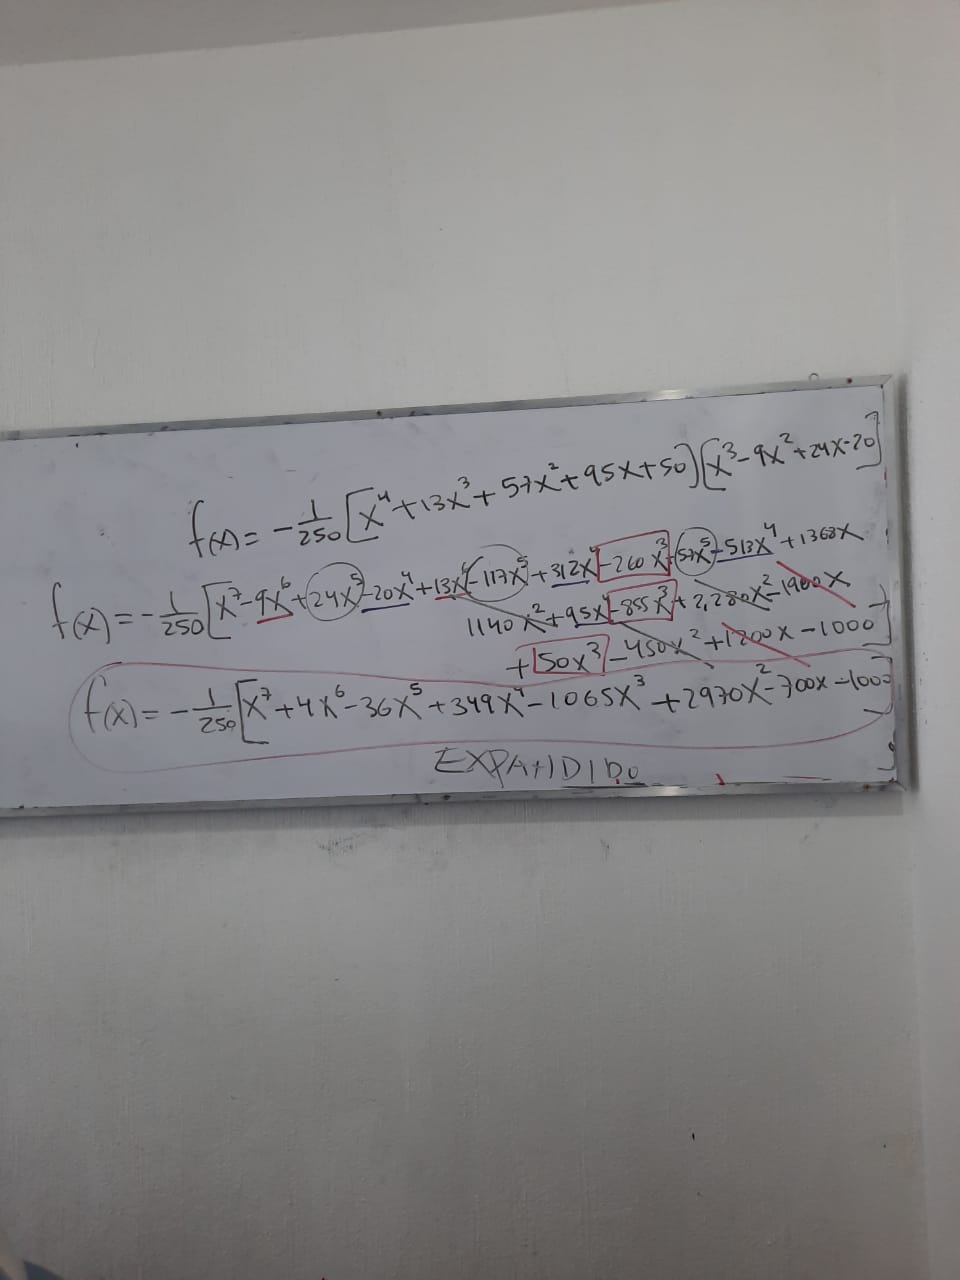 f(x) = -1/250 [x⁴+13x³+57x²+95x+50][x³-9x²+24x-20]
f(x) = -1/250 [x⁷-9x⁶+24x⁵-20x⁴+13x⁶-117x⁵+312x⁴-260x³+57x⁵-513x⁴+1368x
1140x²+95x⁴-855x³+2,280x²-1900x
+50x³-450x²+1200x-1000]
f(x) = -1/250 [x⁷+4x⁶-36x⁵+349x⁴-1065x³+2970x²-700x-1000]
EXPANDIDO